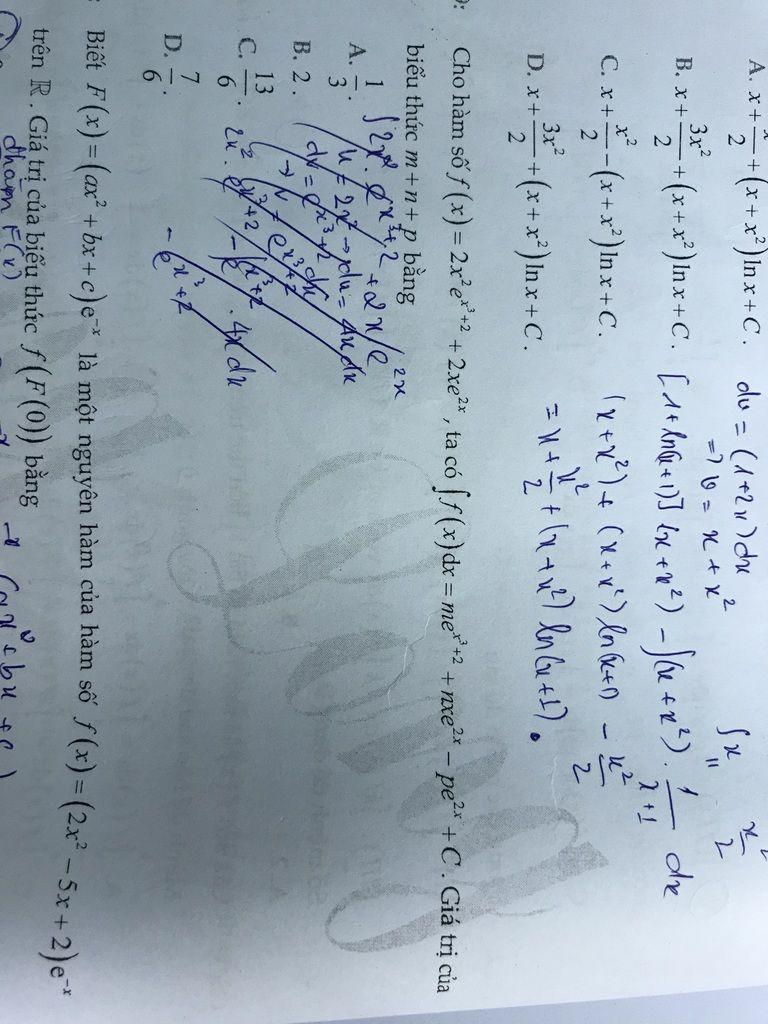 A. x + x/2 + (x + x²) ln x + C.
B. x + 3x²/2 + (x + x²) ln x + C.
C. x + x²/2 − (x + x²) ln x + C.
D. x + 3x²/2 + (x + x²) ln x + C.
dv = (1+2x)dx
=> v = x + x²
∫x
=
x²/2
[1+ln(x+1)](x+x²) − ∫(x+x²) . 1/(x+1) dx
(x+x²) + (x+x²) ln(x+1) − x²/2
= x + x²/2 + (x+x²) ln(x+1).
9: Cho hàm số f(x) = 2x²e^(x³+2) + 2xe^(2x), ta có ∫f(x)dx = me^(x³+2) + nxe^(2x) − pe^(2x) + C. Giá trị của
biểu thức m + n + p bằng
A. 1/3.
B. 2.
C. 13/6.
D. 7/6.
∫2x² . e^(x³+2) + 2x/e^(2x)
u = 2x² → du = 4x dx
dv = e^(x³+2) dx
→ v = e^(x³+2)
2x² . e^(x³+2) − e^(x³+2) . 4x dx
− e^(x³+2)
: Biết F(x) = (ax² + bx + c)e^(−x) là một nguyên hàm của hàm số f(x) = (2x² − 5x + 2)e^(−x)
trên ℝ. Giá trị của biểu thức f(F(0)) bằng
đhàm F(x)
(ax² + bx + c)